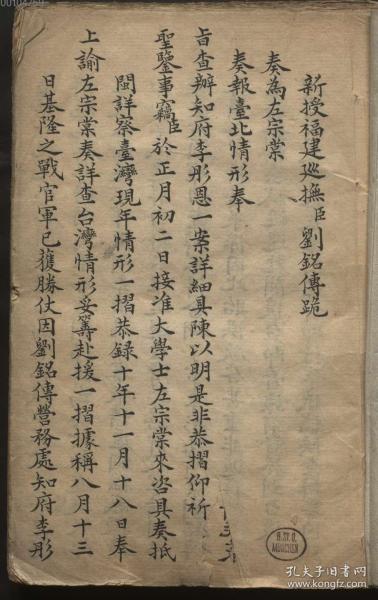 新授福建巡撫臣劉銘傳跪
奏為左宗棠
奏報臺北情形奉
旨查辦知府李彤恩一案詳細具陳以明是非恭摺仰祈
聖鑒事竊臣於正月初二日接准大學士左宗棠來咨具奏抵
閩詳察臺灣現年情形一摺恭録十年十一月十八日奉
上諭左宗棠奏詳查台灣情形妥籌赴援一摺據稱八月十三
日基隆之戰官軍已獲勝仗因劉銘傳營務處知府李彤
MÜNCHEN
孔夫子旧书网
www.kongfz.com